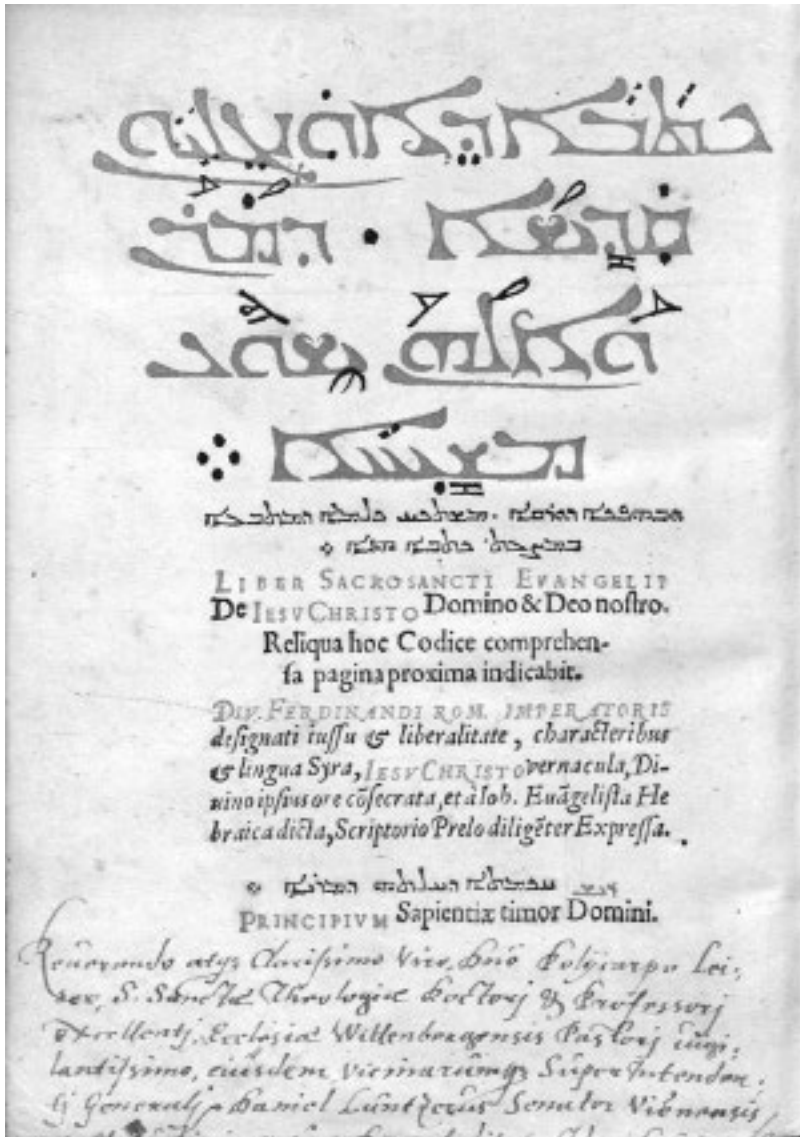 ܟܬܒܐ ܕܐܘܢܓܠܝܘܢ
ܩܕܝܫܐ · ܕܡܪܢ
ܘܐܠܗܢ ܝܫܘܥ
ܡܫܝܚܐ
LIBER SACROSANCTI EVANGELII
De IESV CHRISTO Domino & Deo nostro.
Reliqua hoc Codice comprehen-
sa pagina proxima indicabit.
DIV. FERDINANDI ROM. IMPERATORIS
designati iussu & liberalitate, characteribus
& lingua Syra, IESV CHRISTO vernacula, Di-
uino ipsius ore cõsecrata, et à Ioh. Euãgelista He
braica dicta, Scriptorio Prelo diligẽter Expressa.
PRINCIPIVM Sapientiæ timor Domini.
Reuerendo atq; Clarissimo Viro, Dnõ Polÿcarpo Lei-
ser, S. Sanctæ Theologiæ Doctorj & Professorj
Excellentj, Ecclesiæ Wittenbergensis Pastorj uigi-
lantissimo, eiusdem vicinarumq; Superintenden-
tj Generalj, Daniel Luntzerus Senator